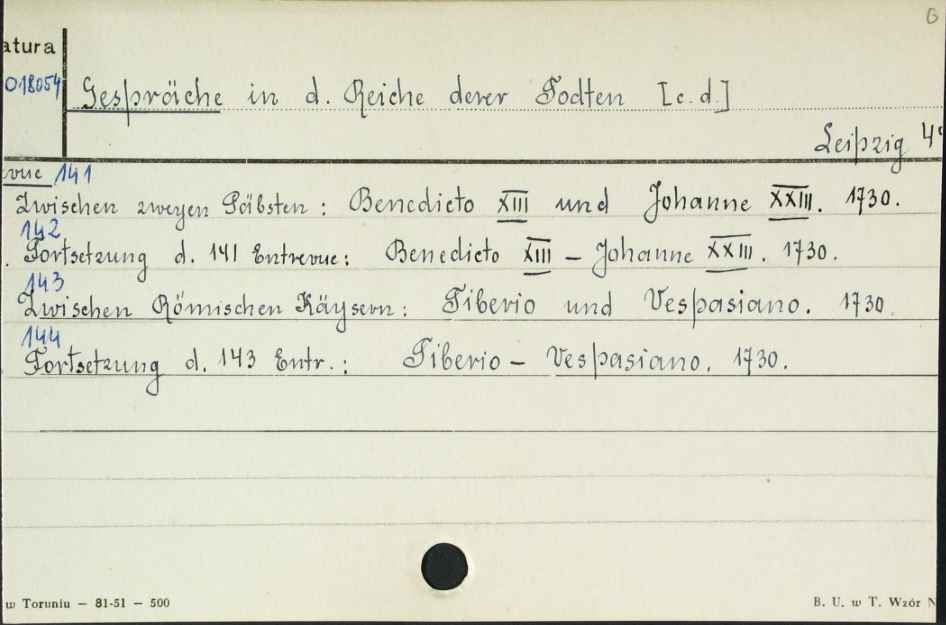 6
atura
018054
Gespräche in d. Reiche derer Todten [c.d.]
Leipzig 4°
evue 141
Zwischen zweyen Päbsten: Benedicto XIII und Johanne XXIII. 1730.
142
. Fortsetzung d. 141 Entrevue: Benedicto XIII – Johanne XXIII. 1730.
143
Zwischen Römischen Käysern: Tiberio und Vespasiano. 1730
144
Fortsetzung d. 143 Entr.: Tiberio – Vespasiano. 1730.
w Toruniu — 81-51 — 500
B. U. w T. Wzór N